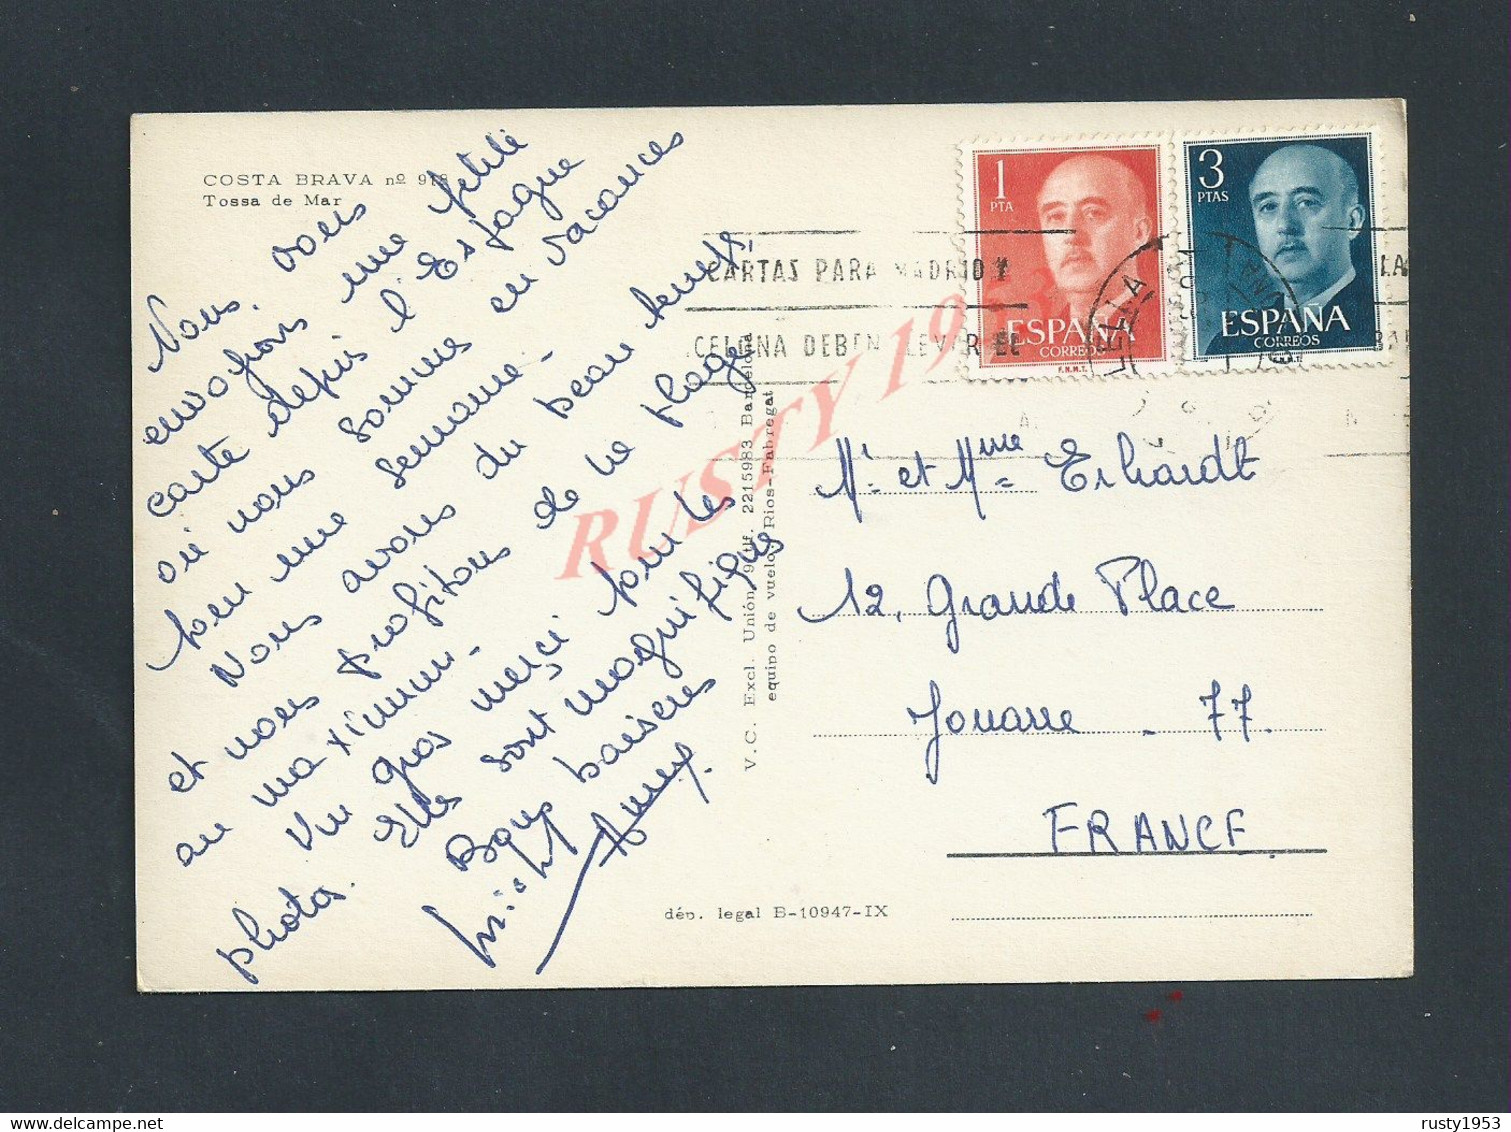 COSTA BRAVA nº 918
Tossa de Mar
Nous vous
envoyons une petite
carte depuis l'Espagne
où nous somme en vacances
pour une semaine -
Nous avons du beau temps,
et nous profitons de la plage
au maximum -
Un gros merçi pour les
photos. Elles sont magnifiques
Bons baisers
V. C. Excl. Unión, 9 Tf. 2215983 Barcelona
equipo de vuelo, Rios-Fabregat
dép. legal B-10947-IX
CARTAS PARA MADRID Y
CELONA DEBEN LEVAR EL
1
PTA
ESPAÑA
CORREOS
F.N.M.T.
3
PTAS
ESPAÑA
CORREOS
Mr et Mme Erhardt
12, Grande Place
Jouarre - 77.
FRANCE
RUSTY 1953
rusty1953